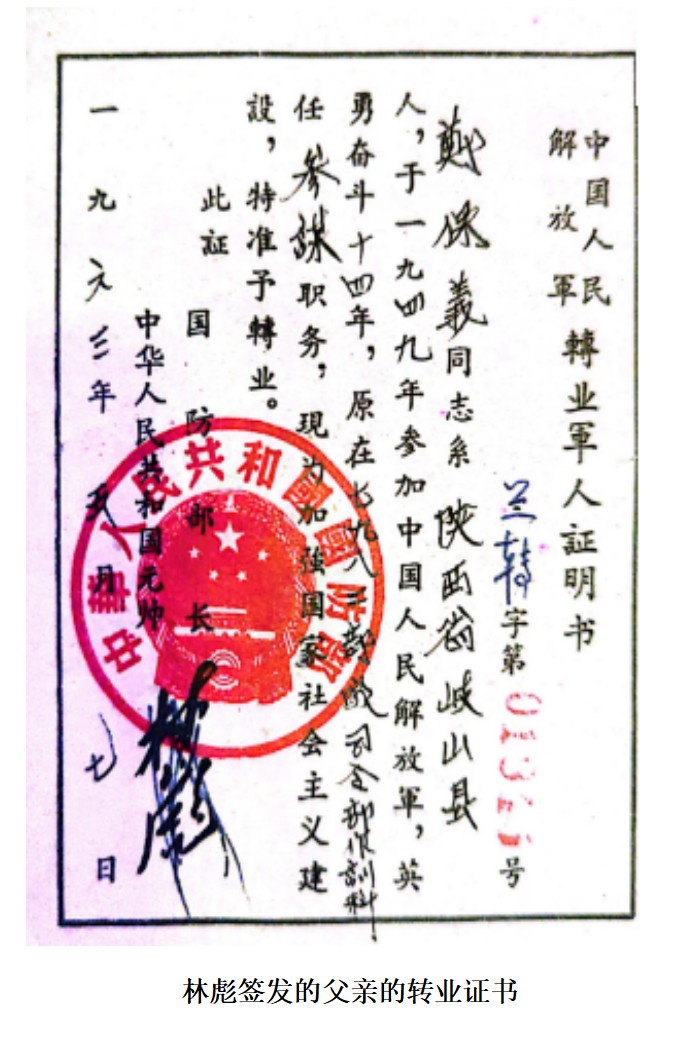 中国人民
解放軍
轉业軍人証明书
兰转字第号
鄭保義同志系陕西省岐山县
人，于一九四九年参加中国人民解放軍，英
勇奋斗十四年，原在七九八三部隊司令部作訓科
任参謀职务，現为加強国家社会主义建
設，特准予轉业。
此証
国防部长
中华人民共和国元帅 林彪
一九六三年五月七日
中華人民共和國國防部
林彪签发的父亲的转业证书